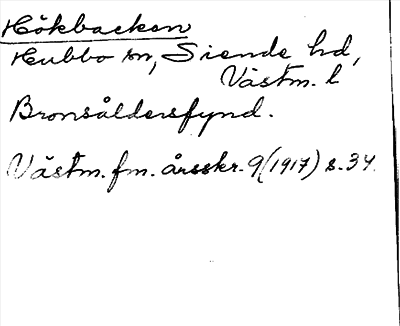 Hökbacken
Hubbo sn, Siende hd,
Västm. l
Bronsåldersfynd.
Västm. fm. årsskr. 9 (1917) s. 34.